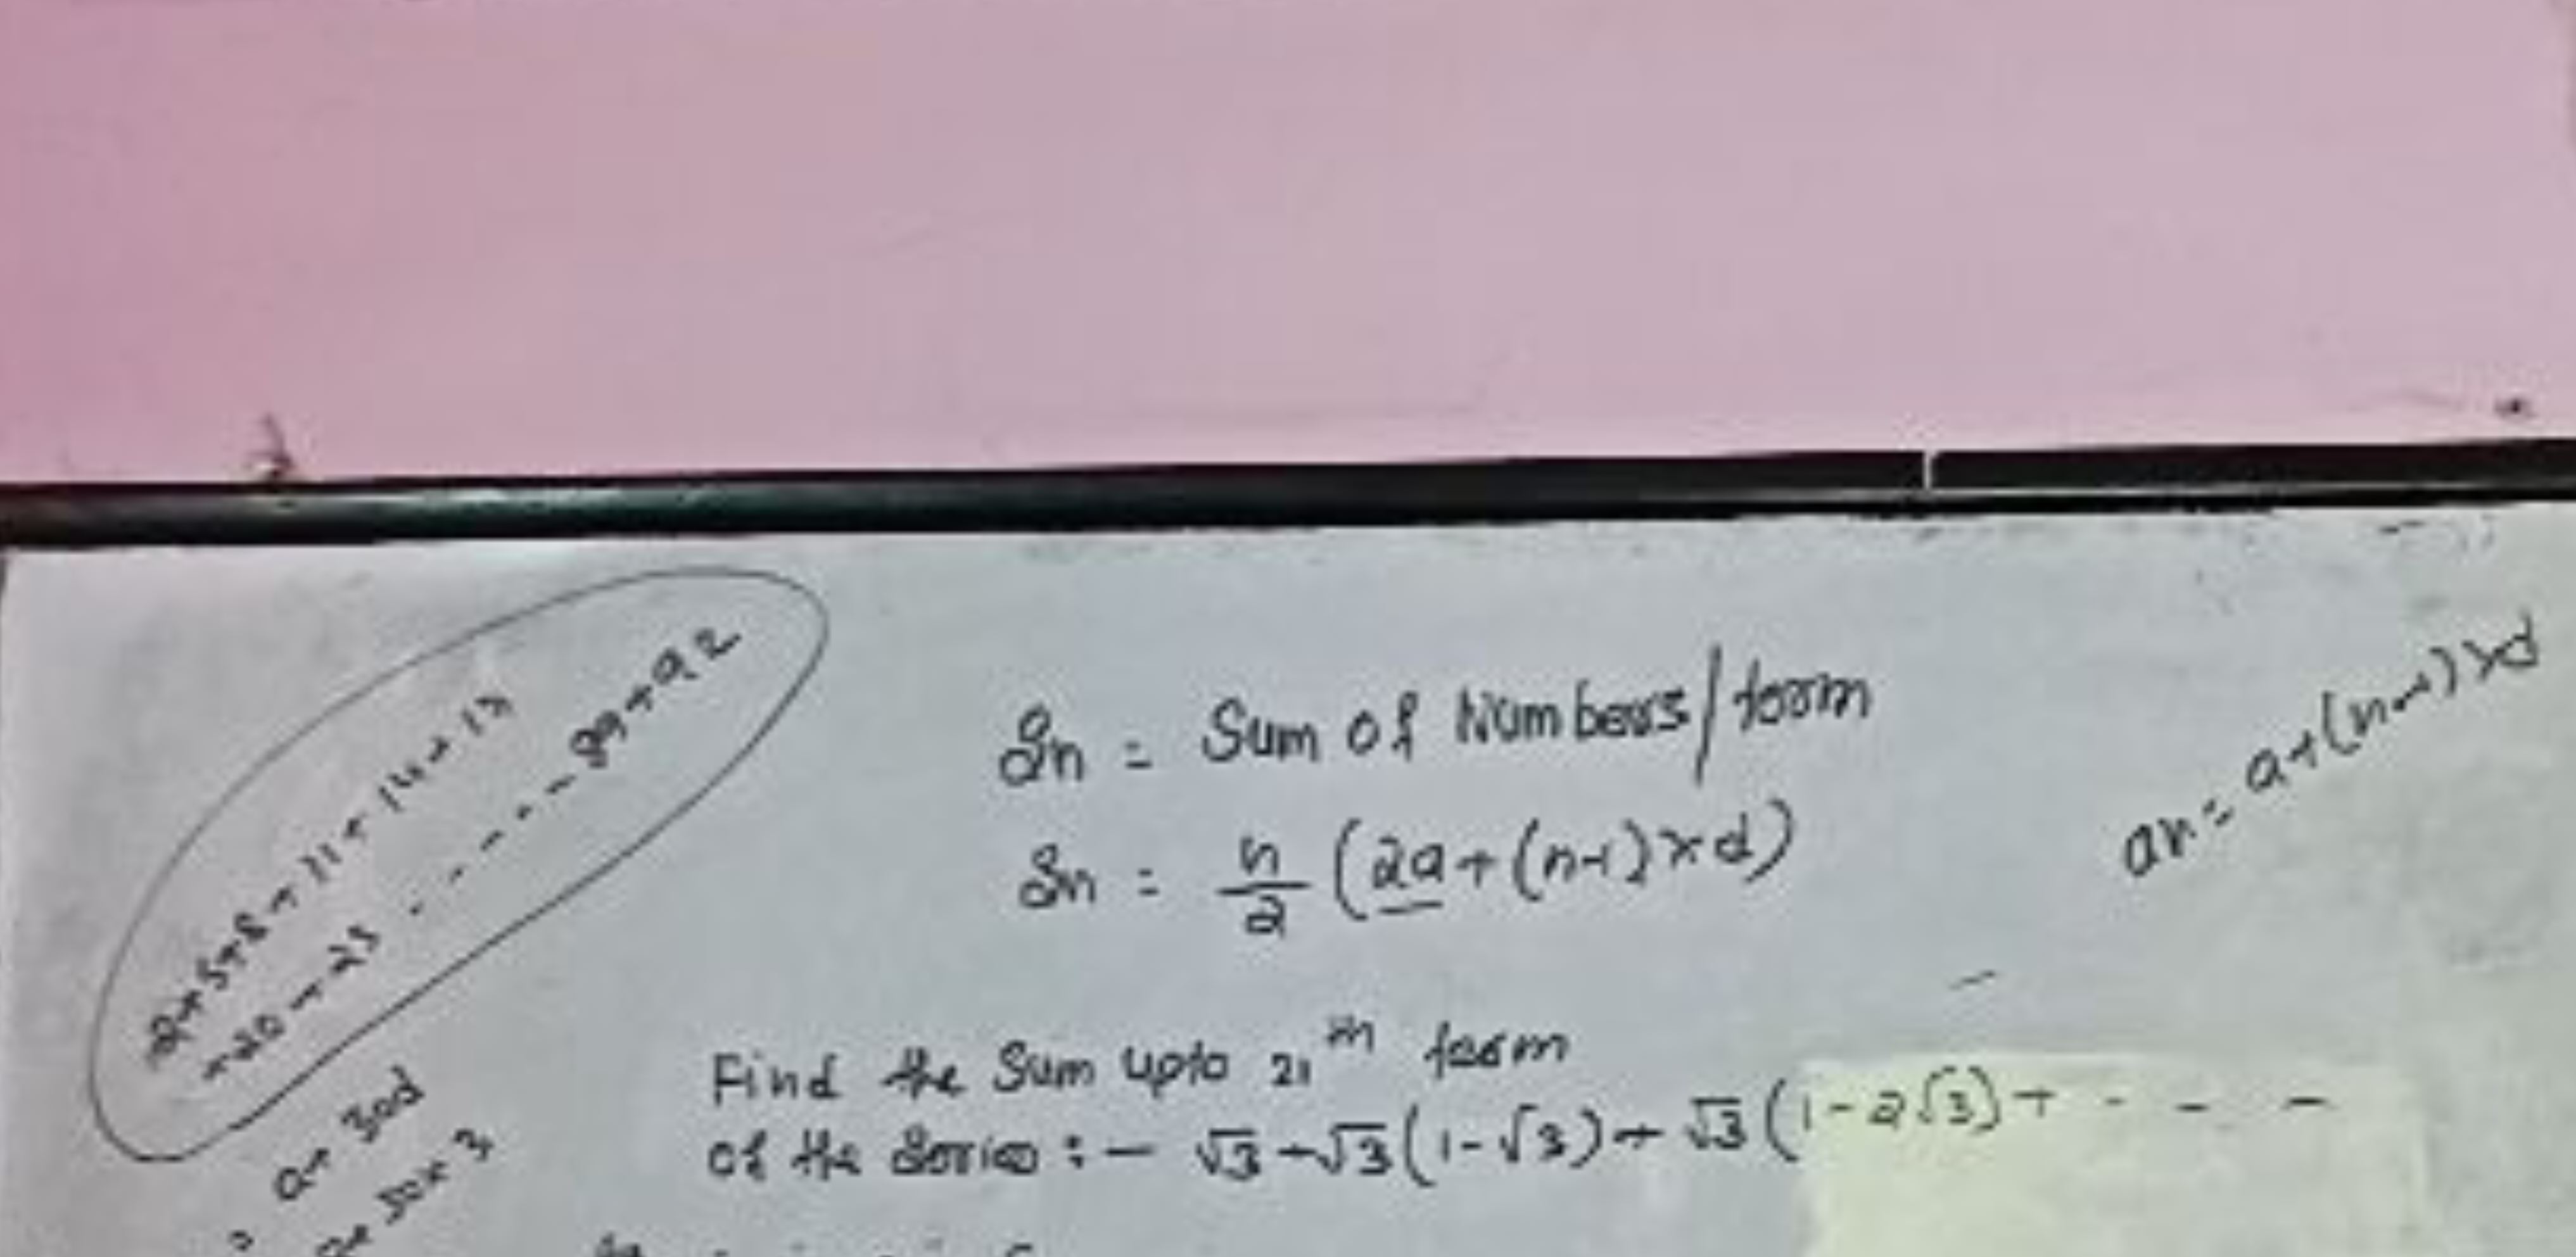 2+5+8+11+14+17
+20+23 . - - - - - 89+92
Sn = Sum of Numbers/term
Sn = n/2 (2a+(n-1)×d)
an = a+(n-1)×d
Find the Sum upto 21th term
of the Series :- √3+√3(1-√3)+√3(1-2√3)+ - - -
a+30d
30×3